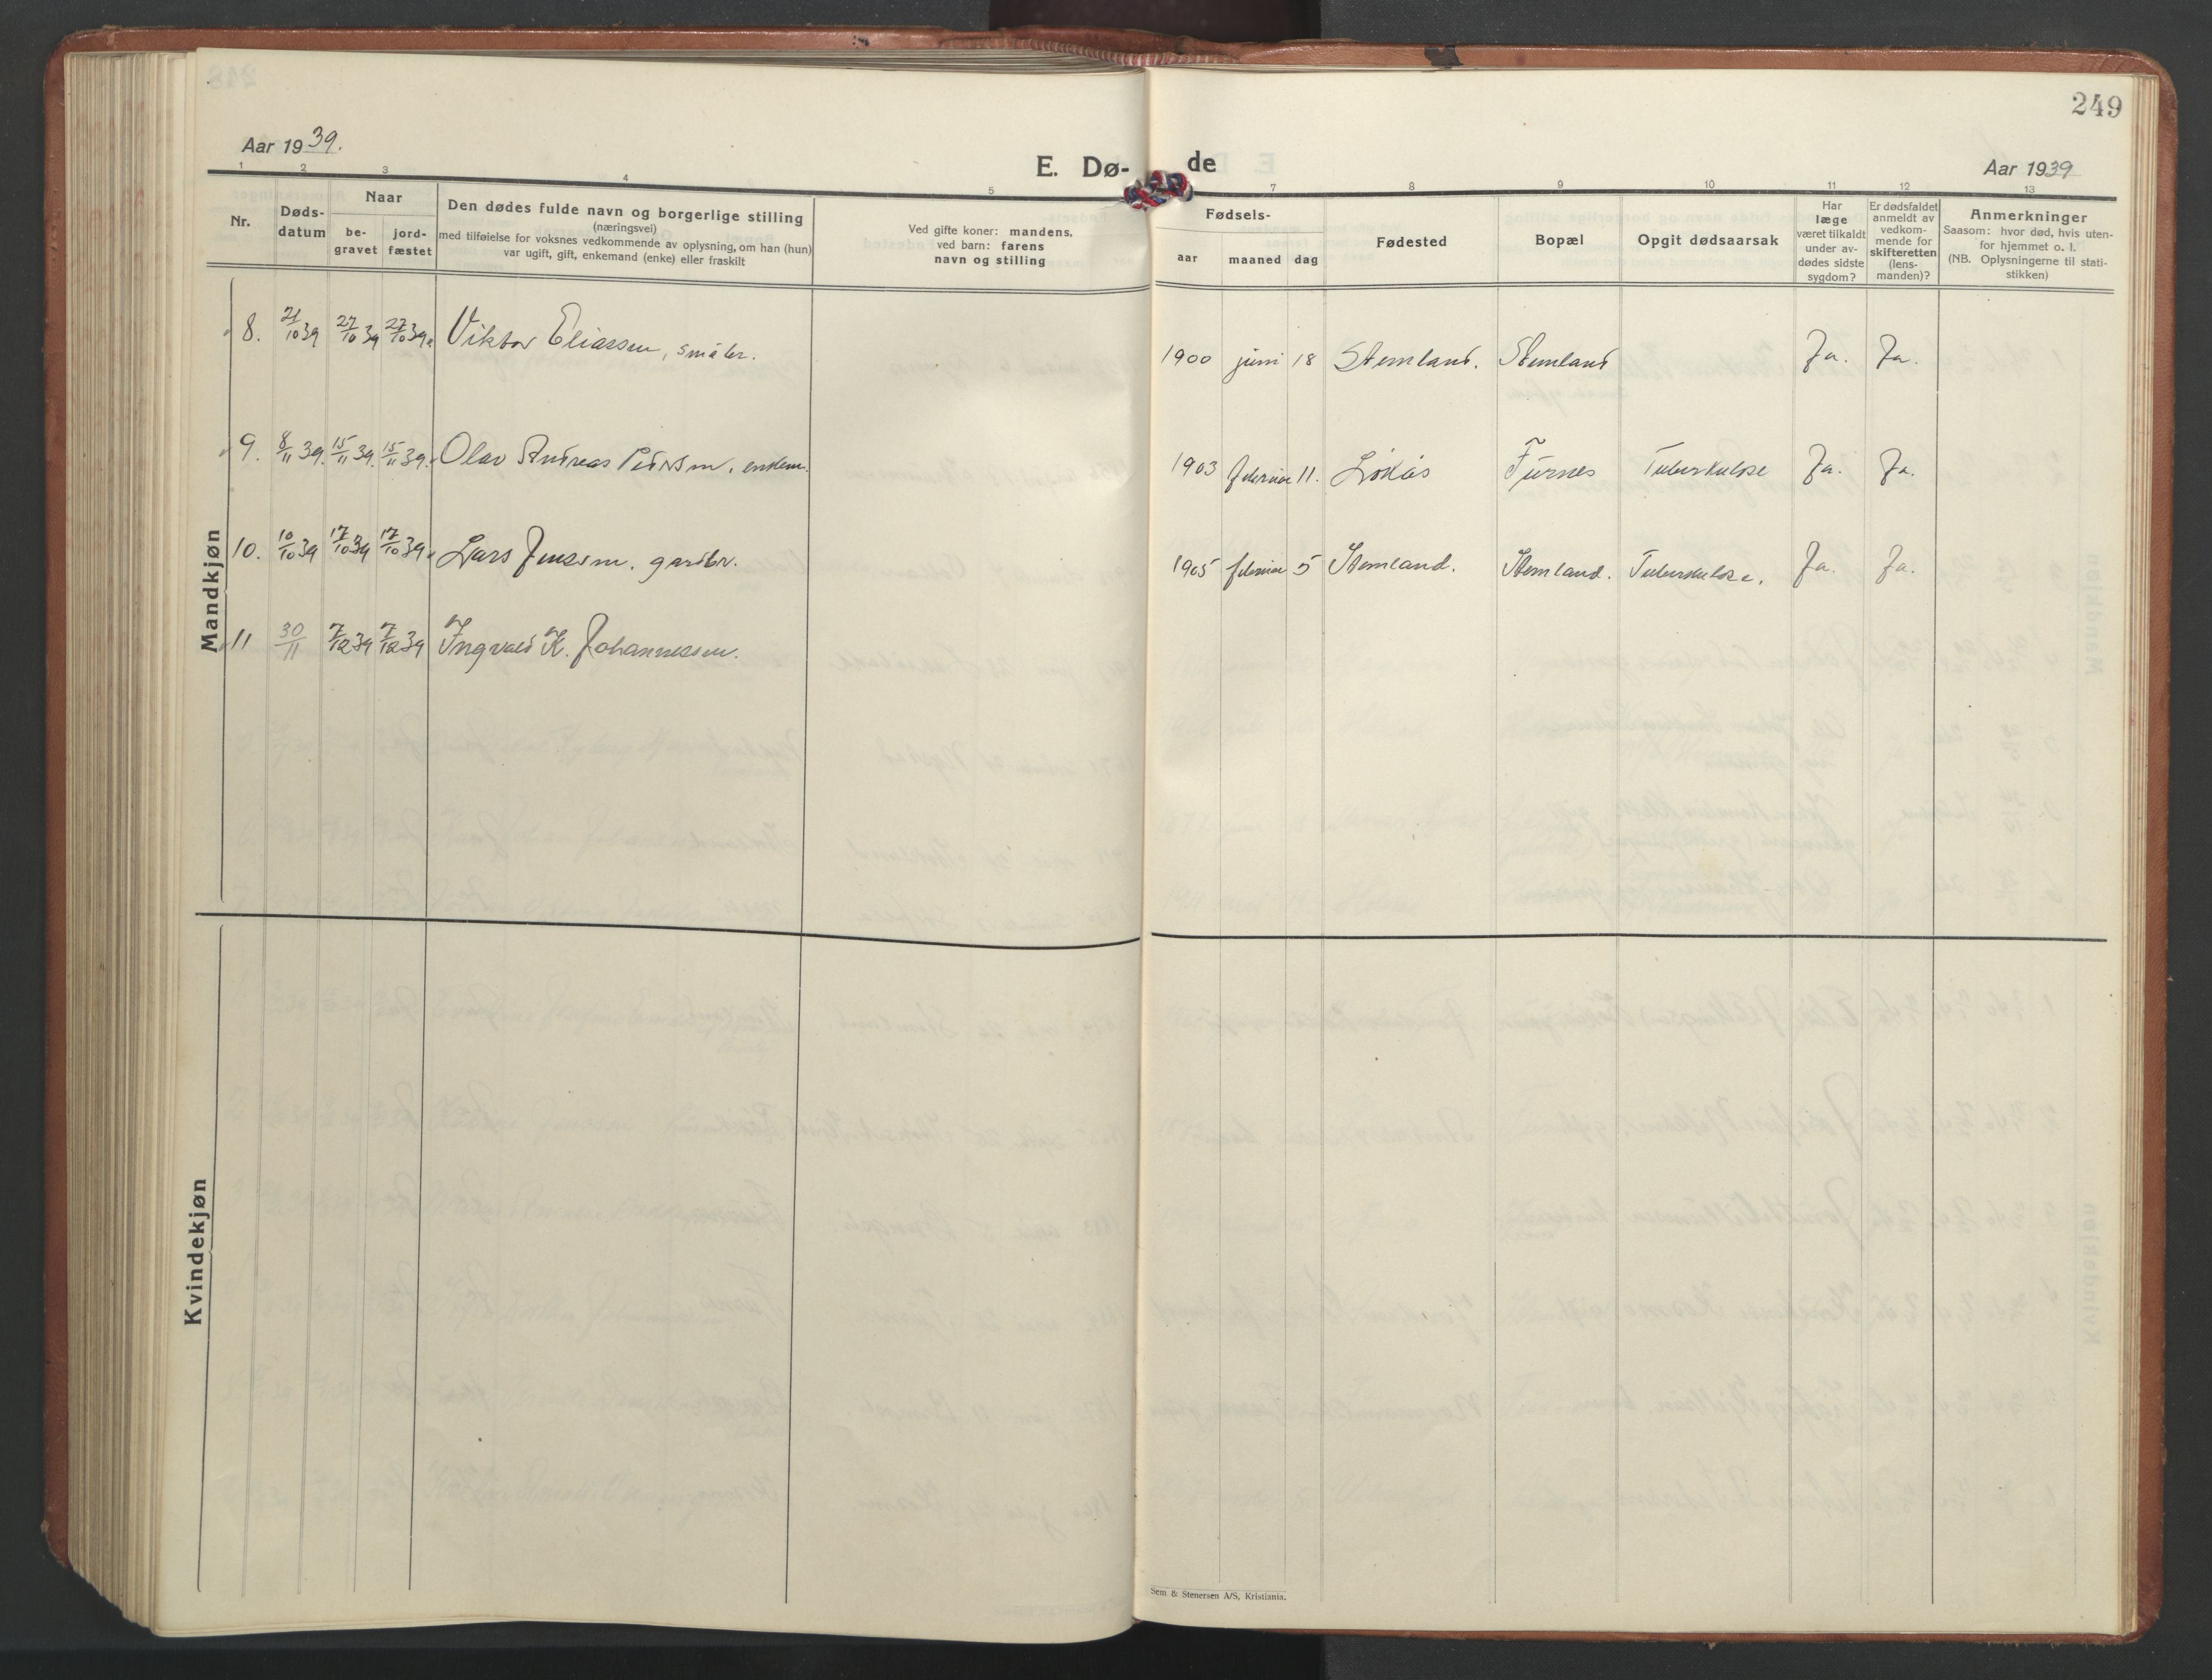 249
Aar 1939.
E. Dø-
de
Aar 1939
1 2 3 4 5 7 8 9 10 11 12 13
Nr.
Døds-
datum
Naar
be-
gravet
jord-
fæstet
Den dødes fulde navn og borgerlige stilling
(næringsvei)
med tilføielse for voksnes vedkommende av oplysning, om han (hun)
var ugift, gift, enkemand (enke) eller fraskilt
Ved gifte koner: mandens,
ved barn: farens
navn og stilling
Fødsels-
aar
maaned
dag
Fødested
Bopæl
Opgit dødsaarsak
Har
læge
været tilkaldt
under av-
dødes sidste
sygdom?
Er dødsfaldet
anmeldt av
vedkom-
mende for
skifteretten
(lens-
manden)?
Anmerkninger
Saasom: hvor død, hvis uten-
for hjemmet o. l.
(NB. Oplysningerne til stati-
stikken)
Mandkjøn
8. 21/10 39 27/10 39 27/10 39 Viktor Eliassen, småbr. 1900 juni 18 Stemland. Stemland Ja. Ja.
9. 8/11 39. 15/11 39. 15/11 39. Olav Andreas Pedersen, enkem. 1903 februar 11. Løkås Furnes Tuberkulose Ja. Ja.
10. 10/10 39 17/10 39 17/10 39 Lars Jenssen. gardbr. 1905 februar 5 Stemland. Stemland. Tuberkulose. Ja. Ja.
11 30/11 7/12 39 7/12 39 Ingvald K. Johannessen.
Kvindekjøn
Sem & Stenersen A/S, Kristiania.